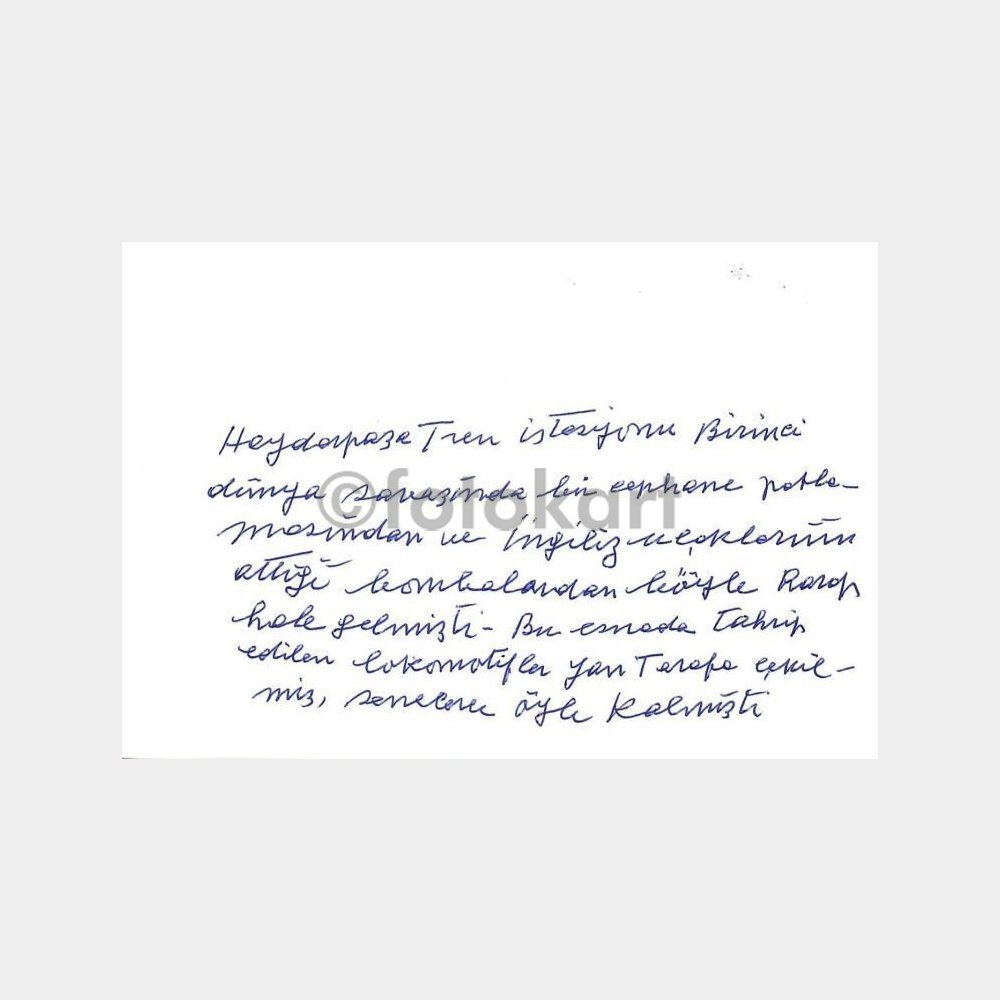 Haydarpaşa Tren istasyonu Birinci
dünya savaşında bir cephane patla-
masından ve İngiliz uçaklarının
attığı bombalardan böyle harap
hale gelmişti - Bu esnada tahrip
edilen lokomotifler yan tarafa çekil-
miş, senelerce öyle kalmıştı
©fotokart